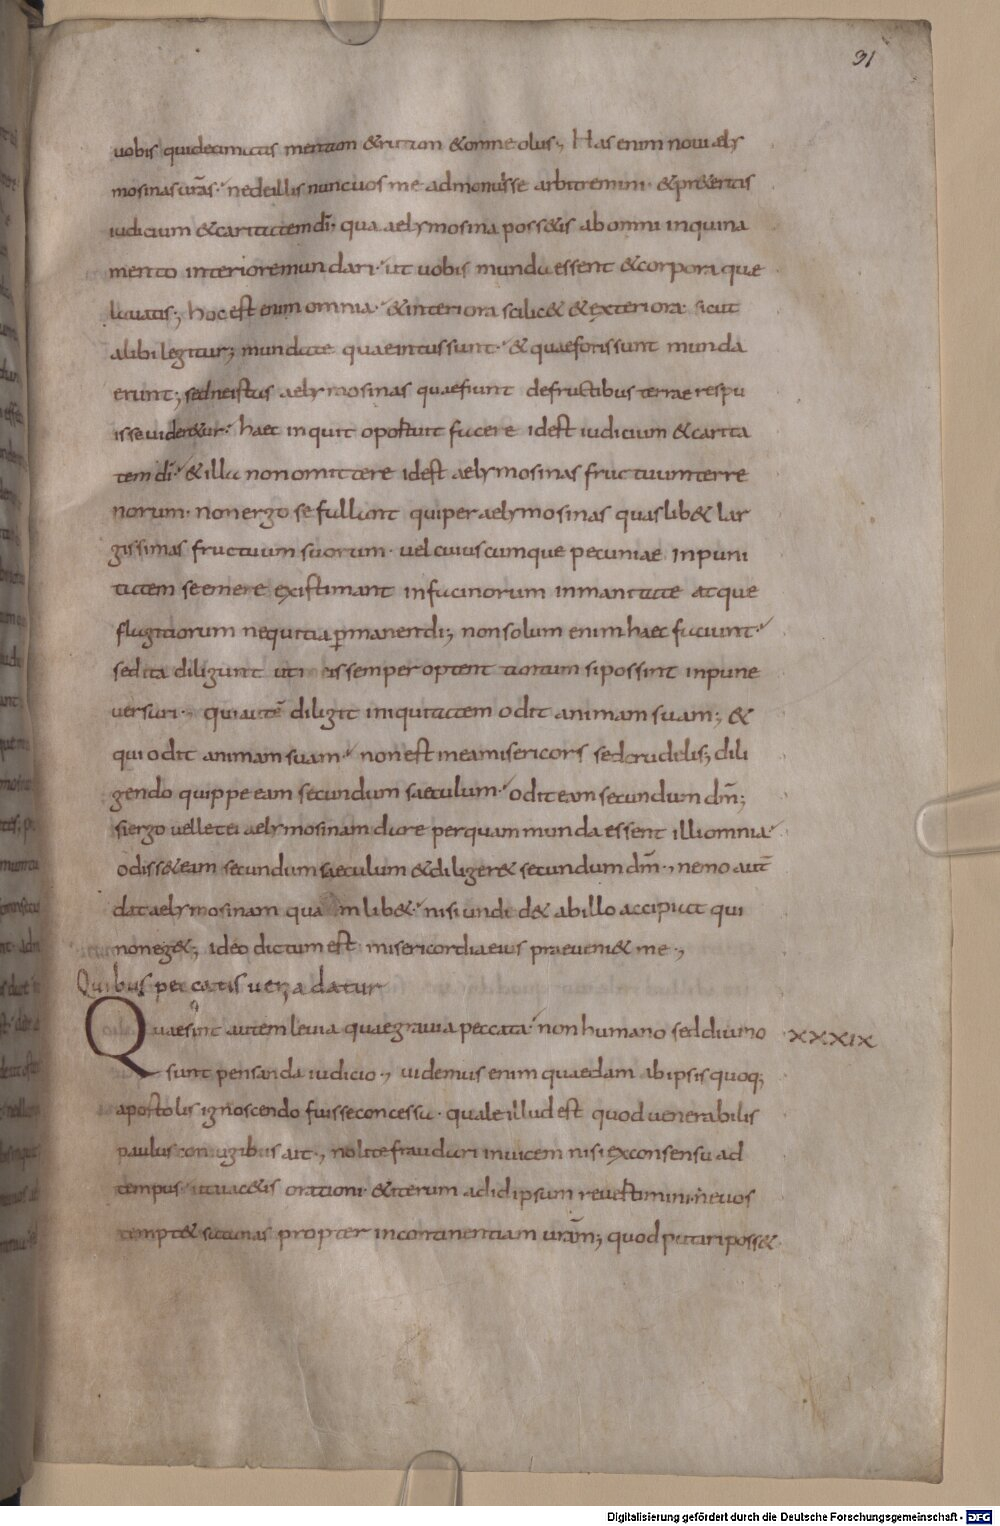 31
uobis quidecimatis mentam &rutam &omne olus; Has enim noui aely
mosinas uras. nedeillis nunc uos me admonuisse arbitremini. &pr&eritis
iudicium &caritatem di; qua aelymosina poss&is ab omni inquina
mento interiore mundari. ut uobis munda essent &corpora que
lauatis; hoc est enim omnia. &interiora scilic& &exteriora. sicut
alibi legitur; mundate quae intus sunt. & quae foris sunt munda
erunt; sed ne istas aelymosinas quae fiunt de fructibus terrae respu
isse uider&ur. haec inquit oportuit facere id est iudicium &carita
tem di. &illa non omittere id est aelymosinas fructuum terre
norum. non ergo se fallant qui per aelymosinas quaslib& lar
gissimas fructuum suorum. uel cuiuscumque pecuniae inpuni
tatem se emere existimant in facinorum inmanitate atque
flagitiorum nequitia pmanendi; non solum enim haec faciunt.
sed ita diligunt ut in eis semper optent tantum si possint inpune
uersari. qui aute diligit iniquitatem odit animam suam; &
qui odit animam suam. non est in ea misericors sed crudelis; dili
gendo quippe eam secundum saeculum. odit eam secundum dm;
si ergo uellet ei aelymosinam dare per quam munda essent illi omnia.
odiss& eam secundum saeculum &diliger& secundum dm., nemo aut
dat aelymosinam quam lib&. nisi unde d& ab illo accipiat qui
non eg&; ideo dictum est misericordia eius praeueni& me.,
Quibus peccatis uenia datur
Quae sint autem leuia quae grauia peccata. non humano sed diuino XXXIX
sunt pensanda iudicio., uidemus enim quaedam ab ipsis quoq;
apostolis ignoscendo fuisse concessa. quale illud est quod uenerabilis
paulus coniugibus ait., nolite fraudari inuicem nisi ex consensu ad
tempus. ut uac&is orationi. &iterum ad id ipsum reuertimini. ne uos
tempt& satanas propter incontinentiam uram; quod putari poss&
Digitalisierung gefördert durch die Deutsche Forschungsgemeinschaft - DFG